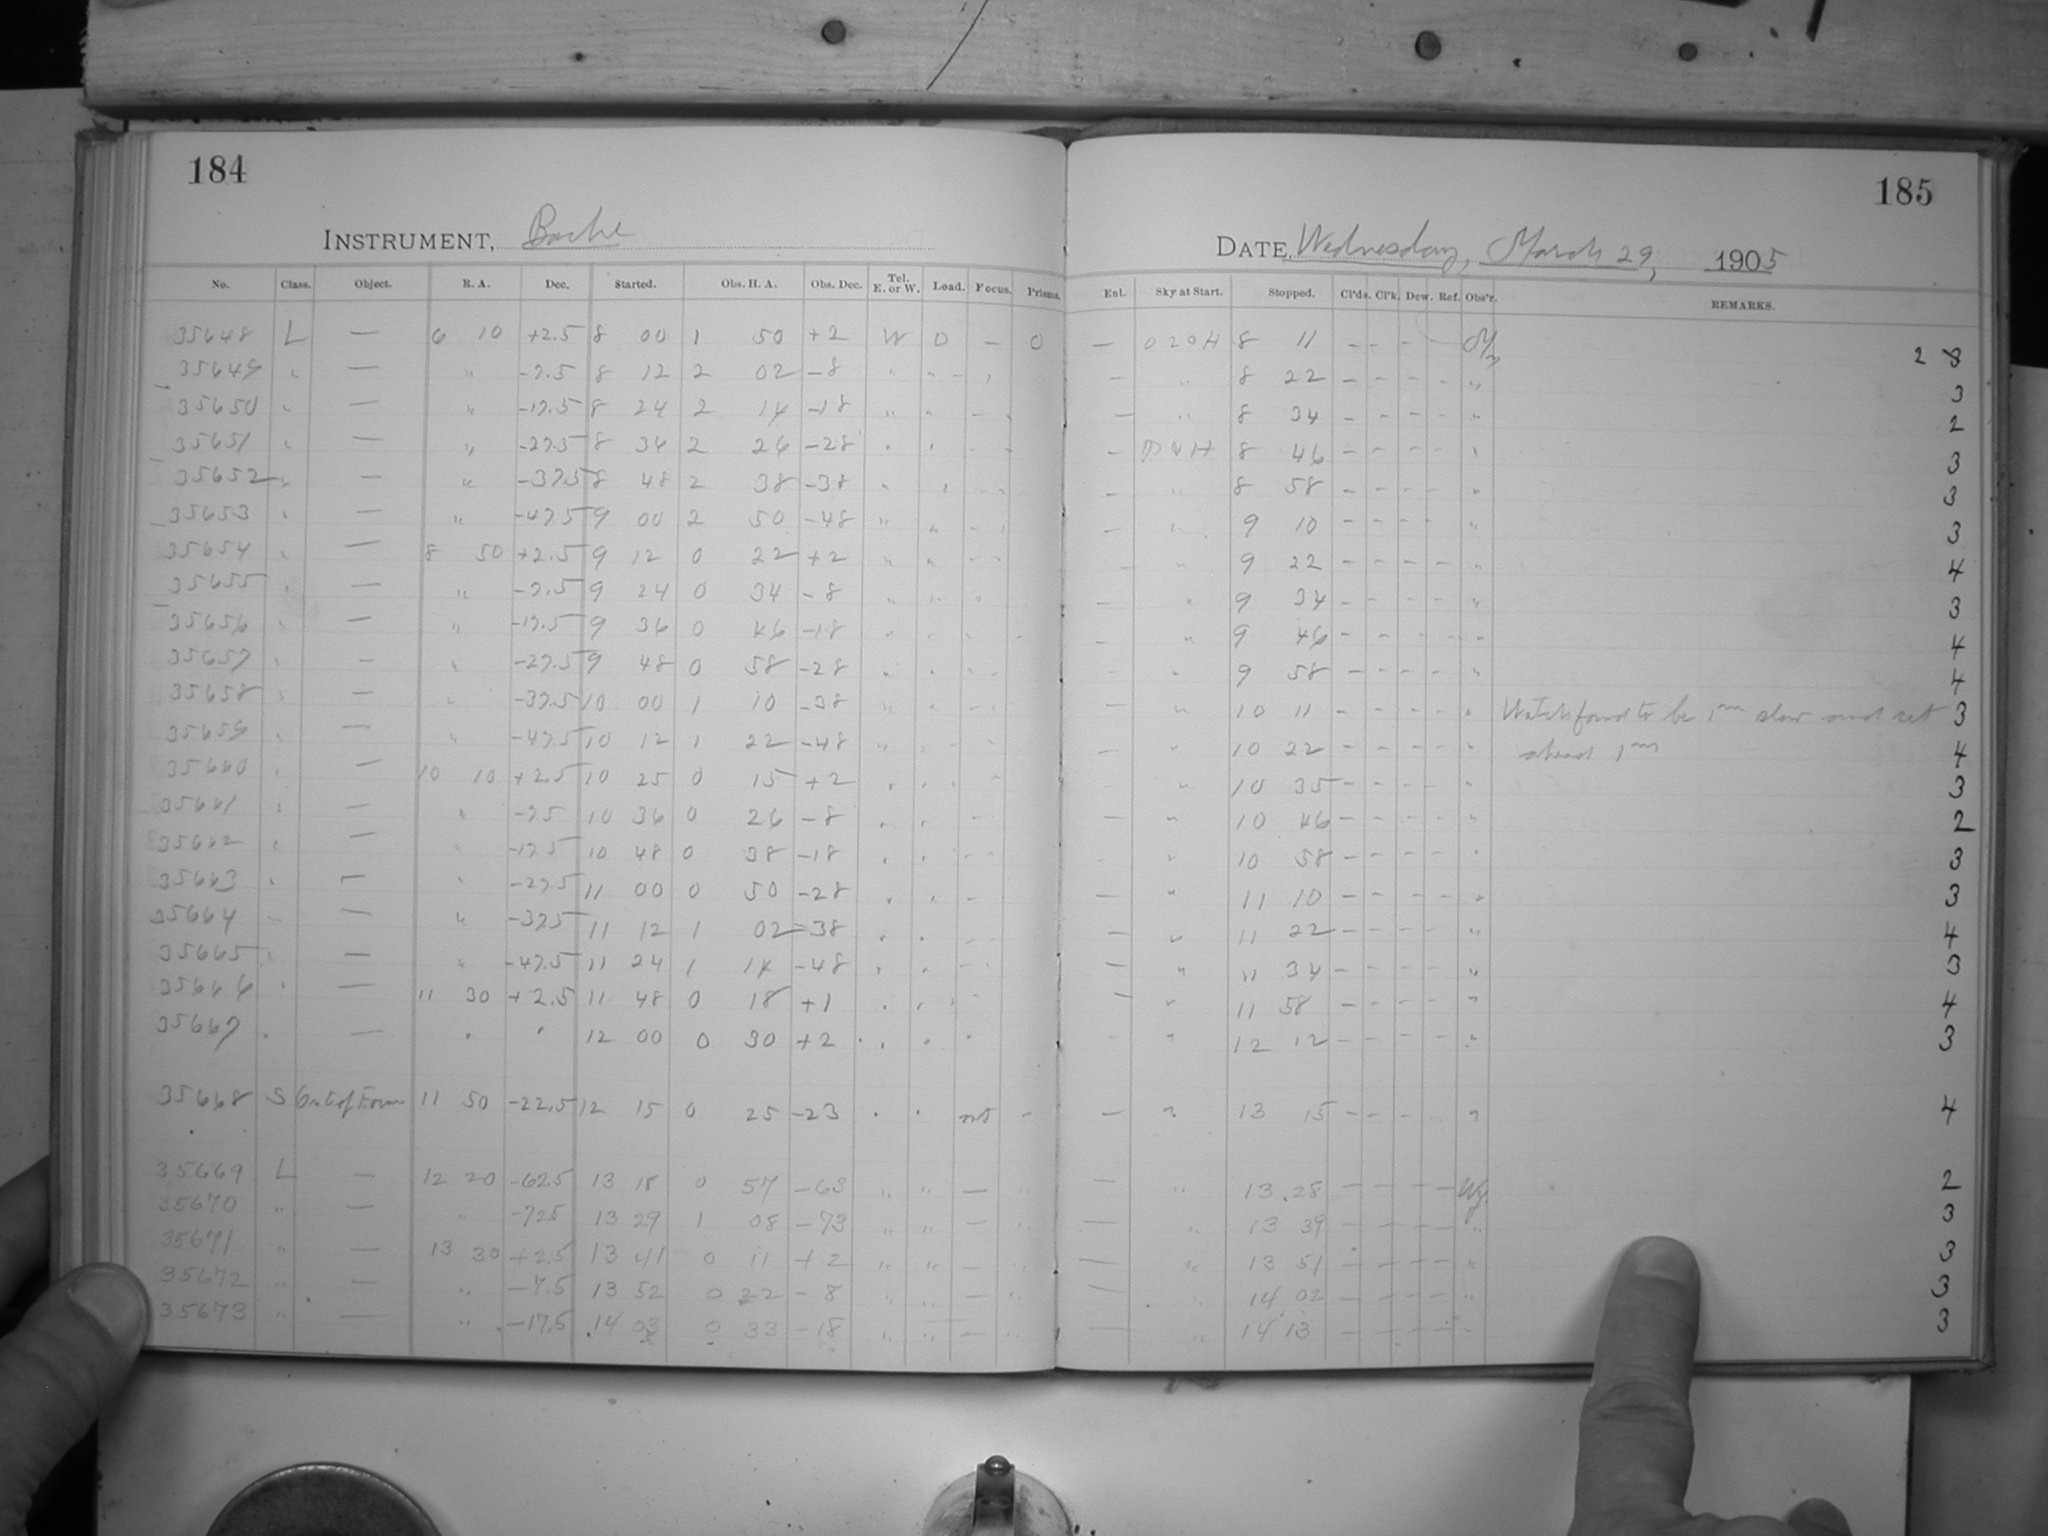 184
INSTRUMENT, Bache
No. Class. Object. R. A. Dec. Started. Obs. H. A. Obs. Dec. Tel. E. or W. Load. Focus. Prisms.
35648 L — 6 10 +2.5 8 00 1 50 +2 W 0 — 0
35649 " — " -7.5 8 12 2 02 -8 " "
35650 " — " -17.5 8 24 2 14 -18 " "
35651 " — " -27.5 8 36 2 26 -28 " "
35652 " — " -37.5 8 48 2 38 -38 " "
35653 " — " -47.5 9 00 2 50 -48 " "
35654 " — 8 50 +2.5 9 12 0 22 +2 " "
35655 " — " -7.5 9 24 0 34 -8 " "
35656 " — " -17.5 9 36 0 46 -18 " "
35657 " — " -27.5 9 48 0 58 -28 " "
35658 " — " -37.5 10 00 1 10 -38 " "
35659 " — " -47.5 10 12 1 22 -48 " "
35660 " — 10 10 +2.5 10 25 0 15 +2 " "
35661 " — " -7.5 10 36 0 26 -8 " "
35662 " — " -17.5 10 48 0 38 -18 " "
35663 " — " -27.5 11 00 0 50 -28 " "
35664 " — " -37.5 11 12 1 02 -38 " "
35665 " — " -47.5 11 24 1 14 -48 " "
35666 " — 11 30 +2.5 11 48 0 18 +1 " "
35667 " — " " 12 00 0 30 +2 " "
35668 S Out of Focus 11 50 -22.5 12 15 0 25 -23 " "
35669 L — 12 20 -62.5 13 18 0 57 -63 " " —
35670 " — " -72.5 13 29 1 08 -73 " " —
35671 " — 13 30 +2.5 13 41 0 11 +2 " " —
35672 " — " -7.5 13 52 0 22 -8 " " —
35673 " — " -17.5 14 03 0 33 -18 " " —
185
DATE, Wednesday, March 29, 1905
Enl. Sky at Start. Stopped. Cl'ds. Cl'k. Dew. Ref. Obs'r. REMARKS.
— 020H 8 11 - - - 2 3
— " 8 22 - - - - " 3
— " 8 34 - - - - " 2
— 8 46 - - - - " 3
— " 8 58 - - - - " 3
— " 9 10 - - - - " 3
— " 9 22 - - - - " 4
— " 9 34 - - - - " 3
— " 9 46 - - - - " 4
— " 9 58 - - - - " 4
— " 10 11 - - - - " Watch found to be 1m slow and set 3
— " 10 22 - - - - " ahead 1m 4
" 10 35 - - - - " 3
— " 10 46 - - - - " 2
" 10 58 - - - - " 3
— " 11 10 - - - - " 3
— " 11 22 - - - - " 4
— " 11 34 - - - - " 3
— " 11 58 - - - - " 4
" 12 12 - - - - " 3
— " 13 15 - - - - " 4
— " 13 28 - - - - Wy. 2
— " 13 39 - - - - " 3
— " 13 51 - - - - " 3
— " 14 02 - - - - " 3
— " 14 13 - - - - " 3